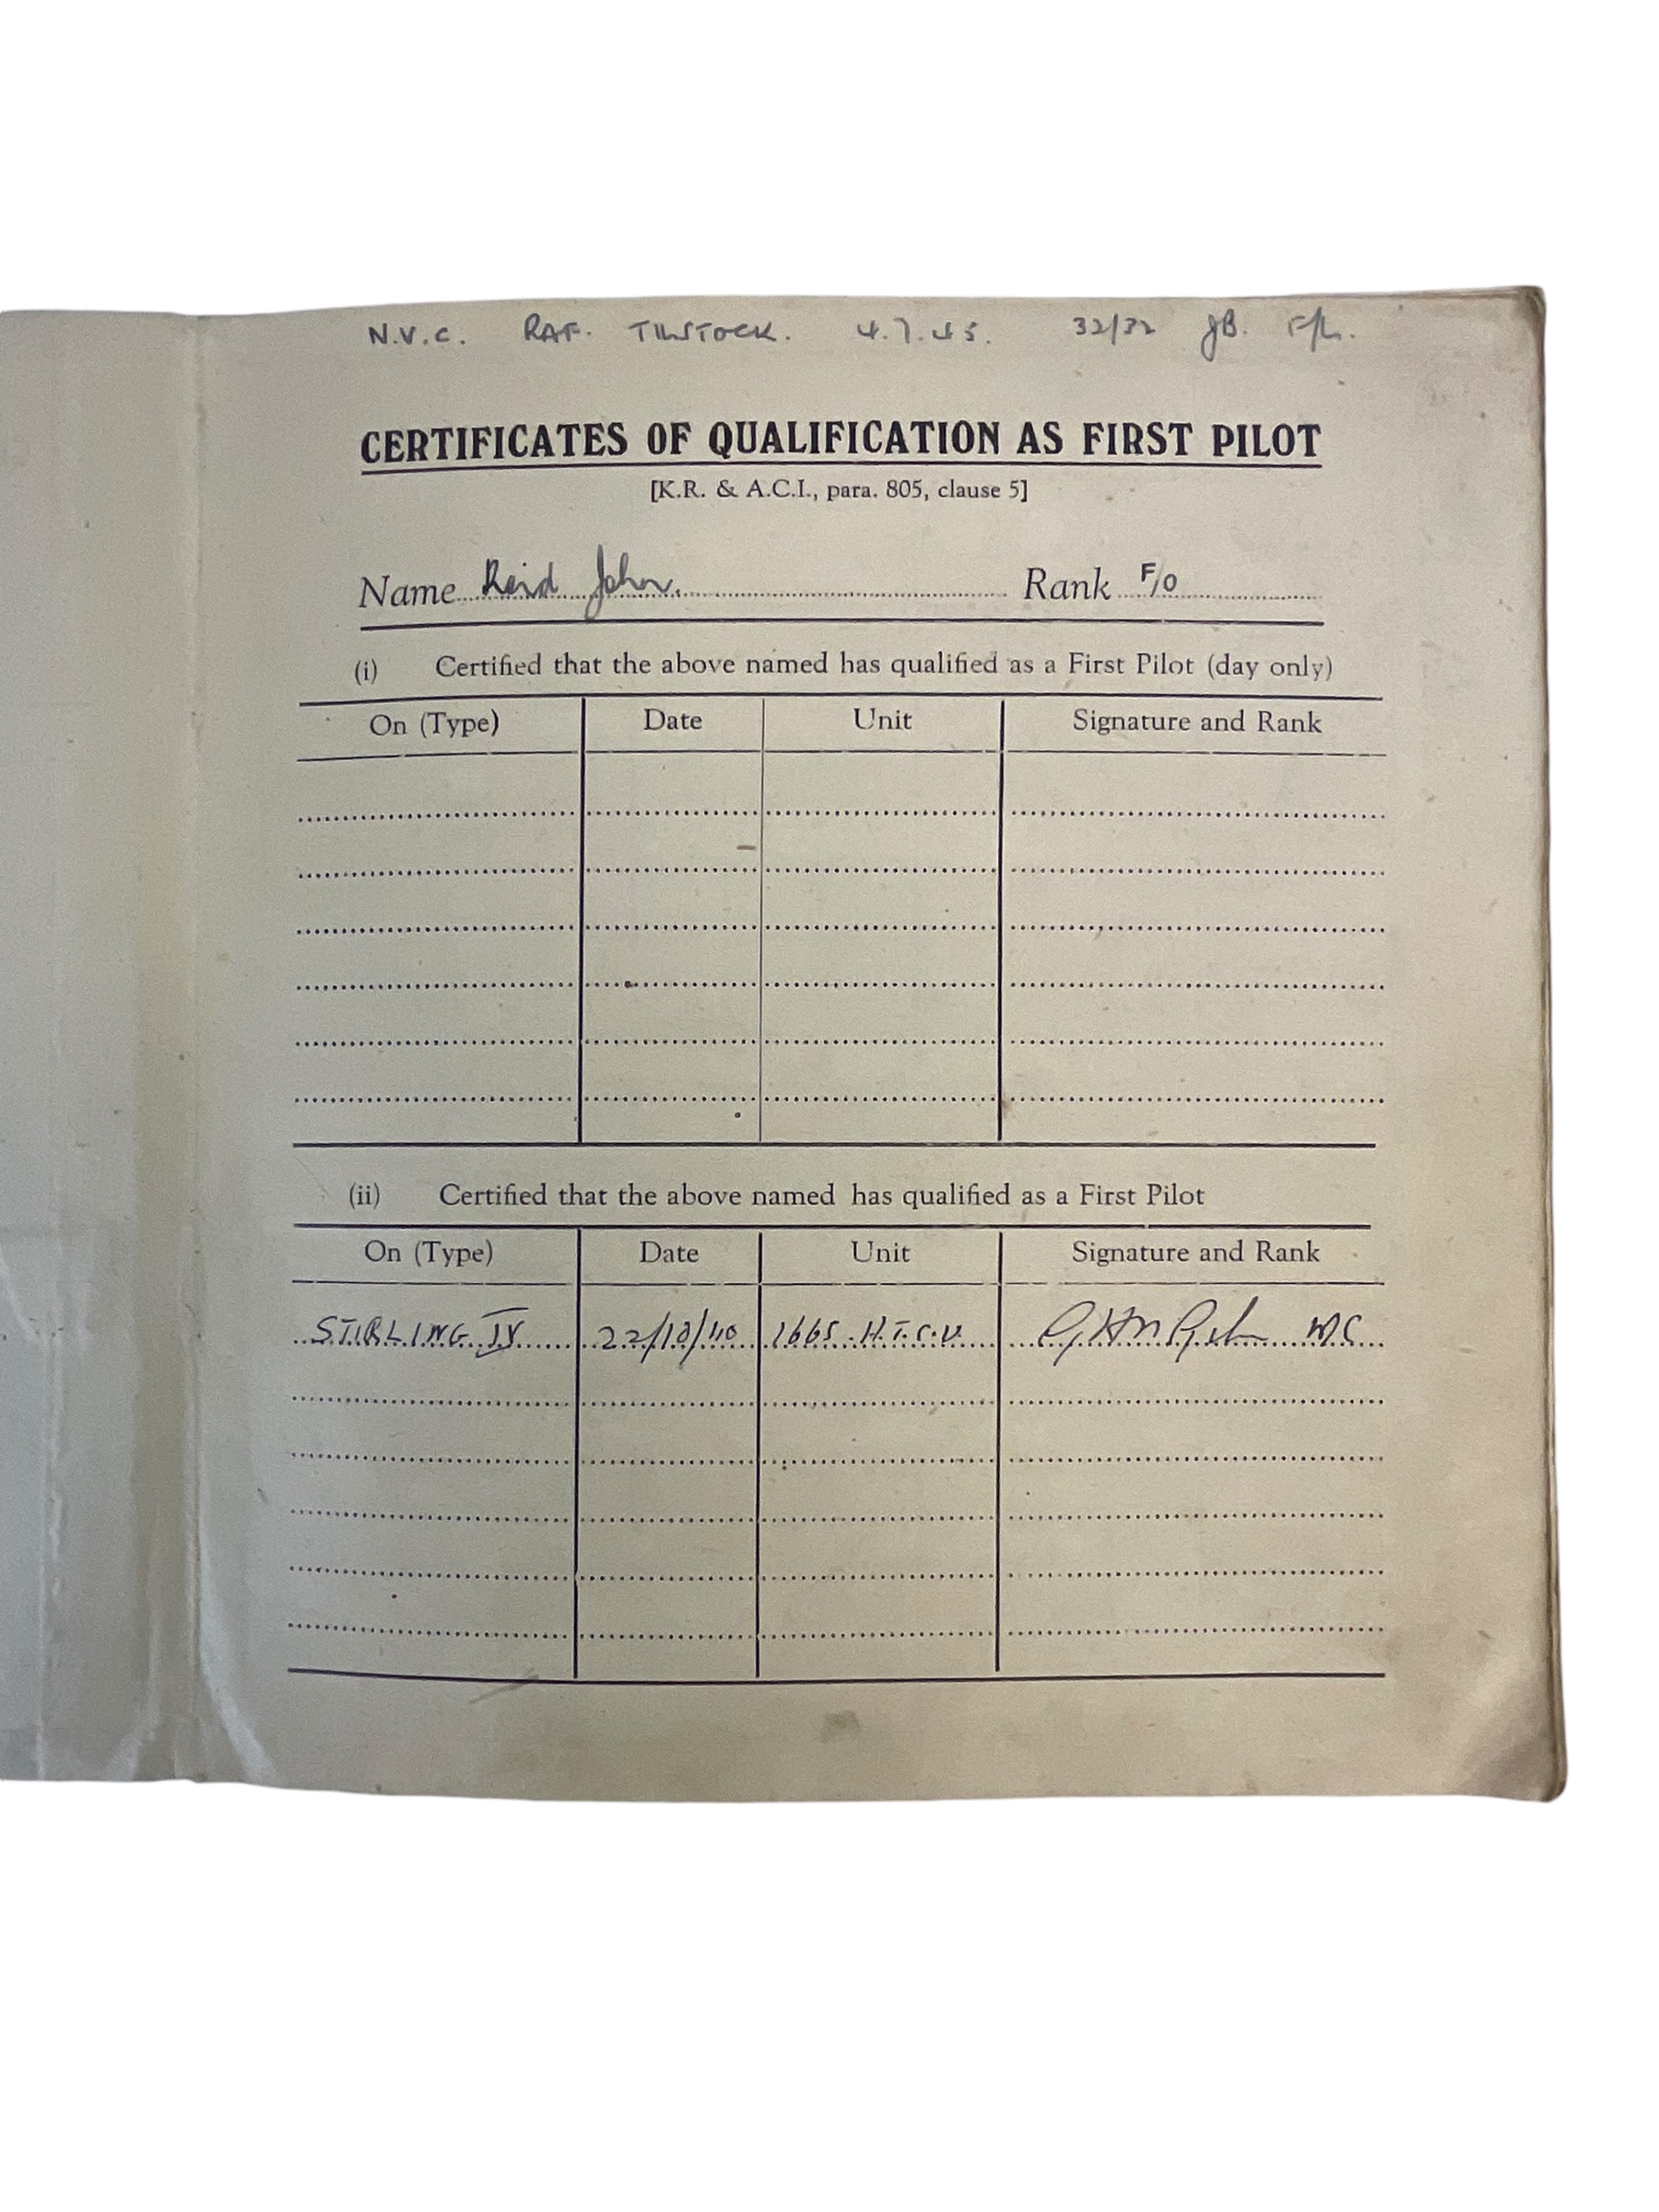 N.V.C. RAF. TILSTOCK. 4.7.45. 32/32 JB. F/L.
CERTIFICATES OF QUALIFICATION AS FIRST PILOT
[K.R. & A.C.I., para. 805, clause 5]
Name Reid John. Rank F/O
(i) Certified that the above named has qualified as a First Pilot (day only)
On (Type) Date Unit Signature and Rank
(ii) Certified that the above named has qualified as a First Pilot
On (Type) Date Unit Signature and Rank
STIRLING IV 22/10/40 1665 H.T.C.U. W.C